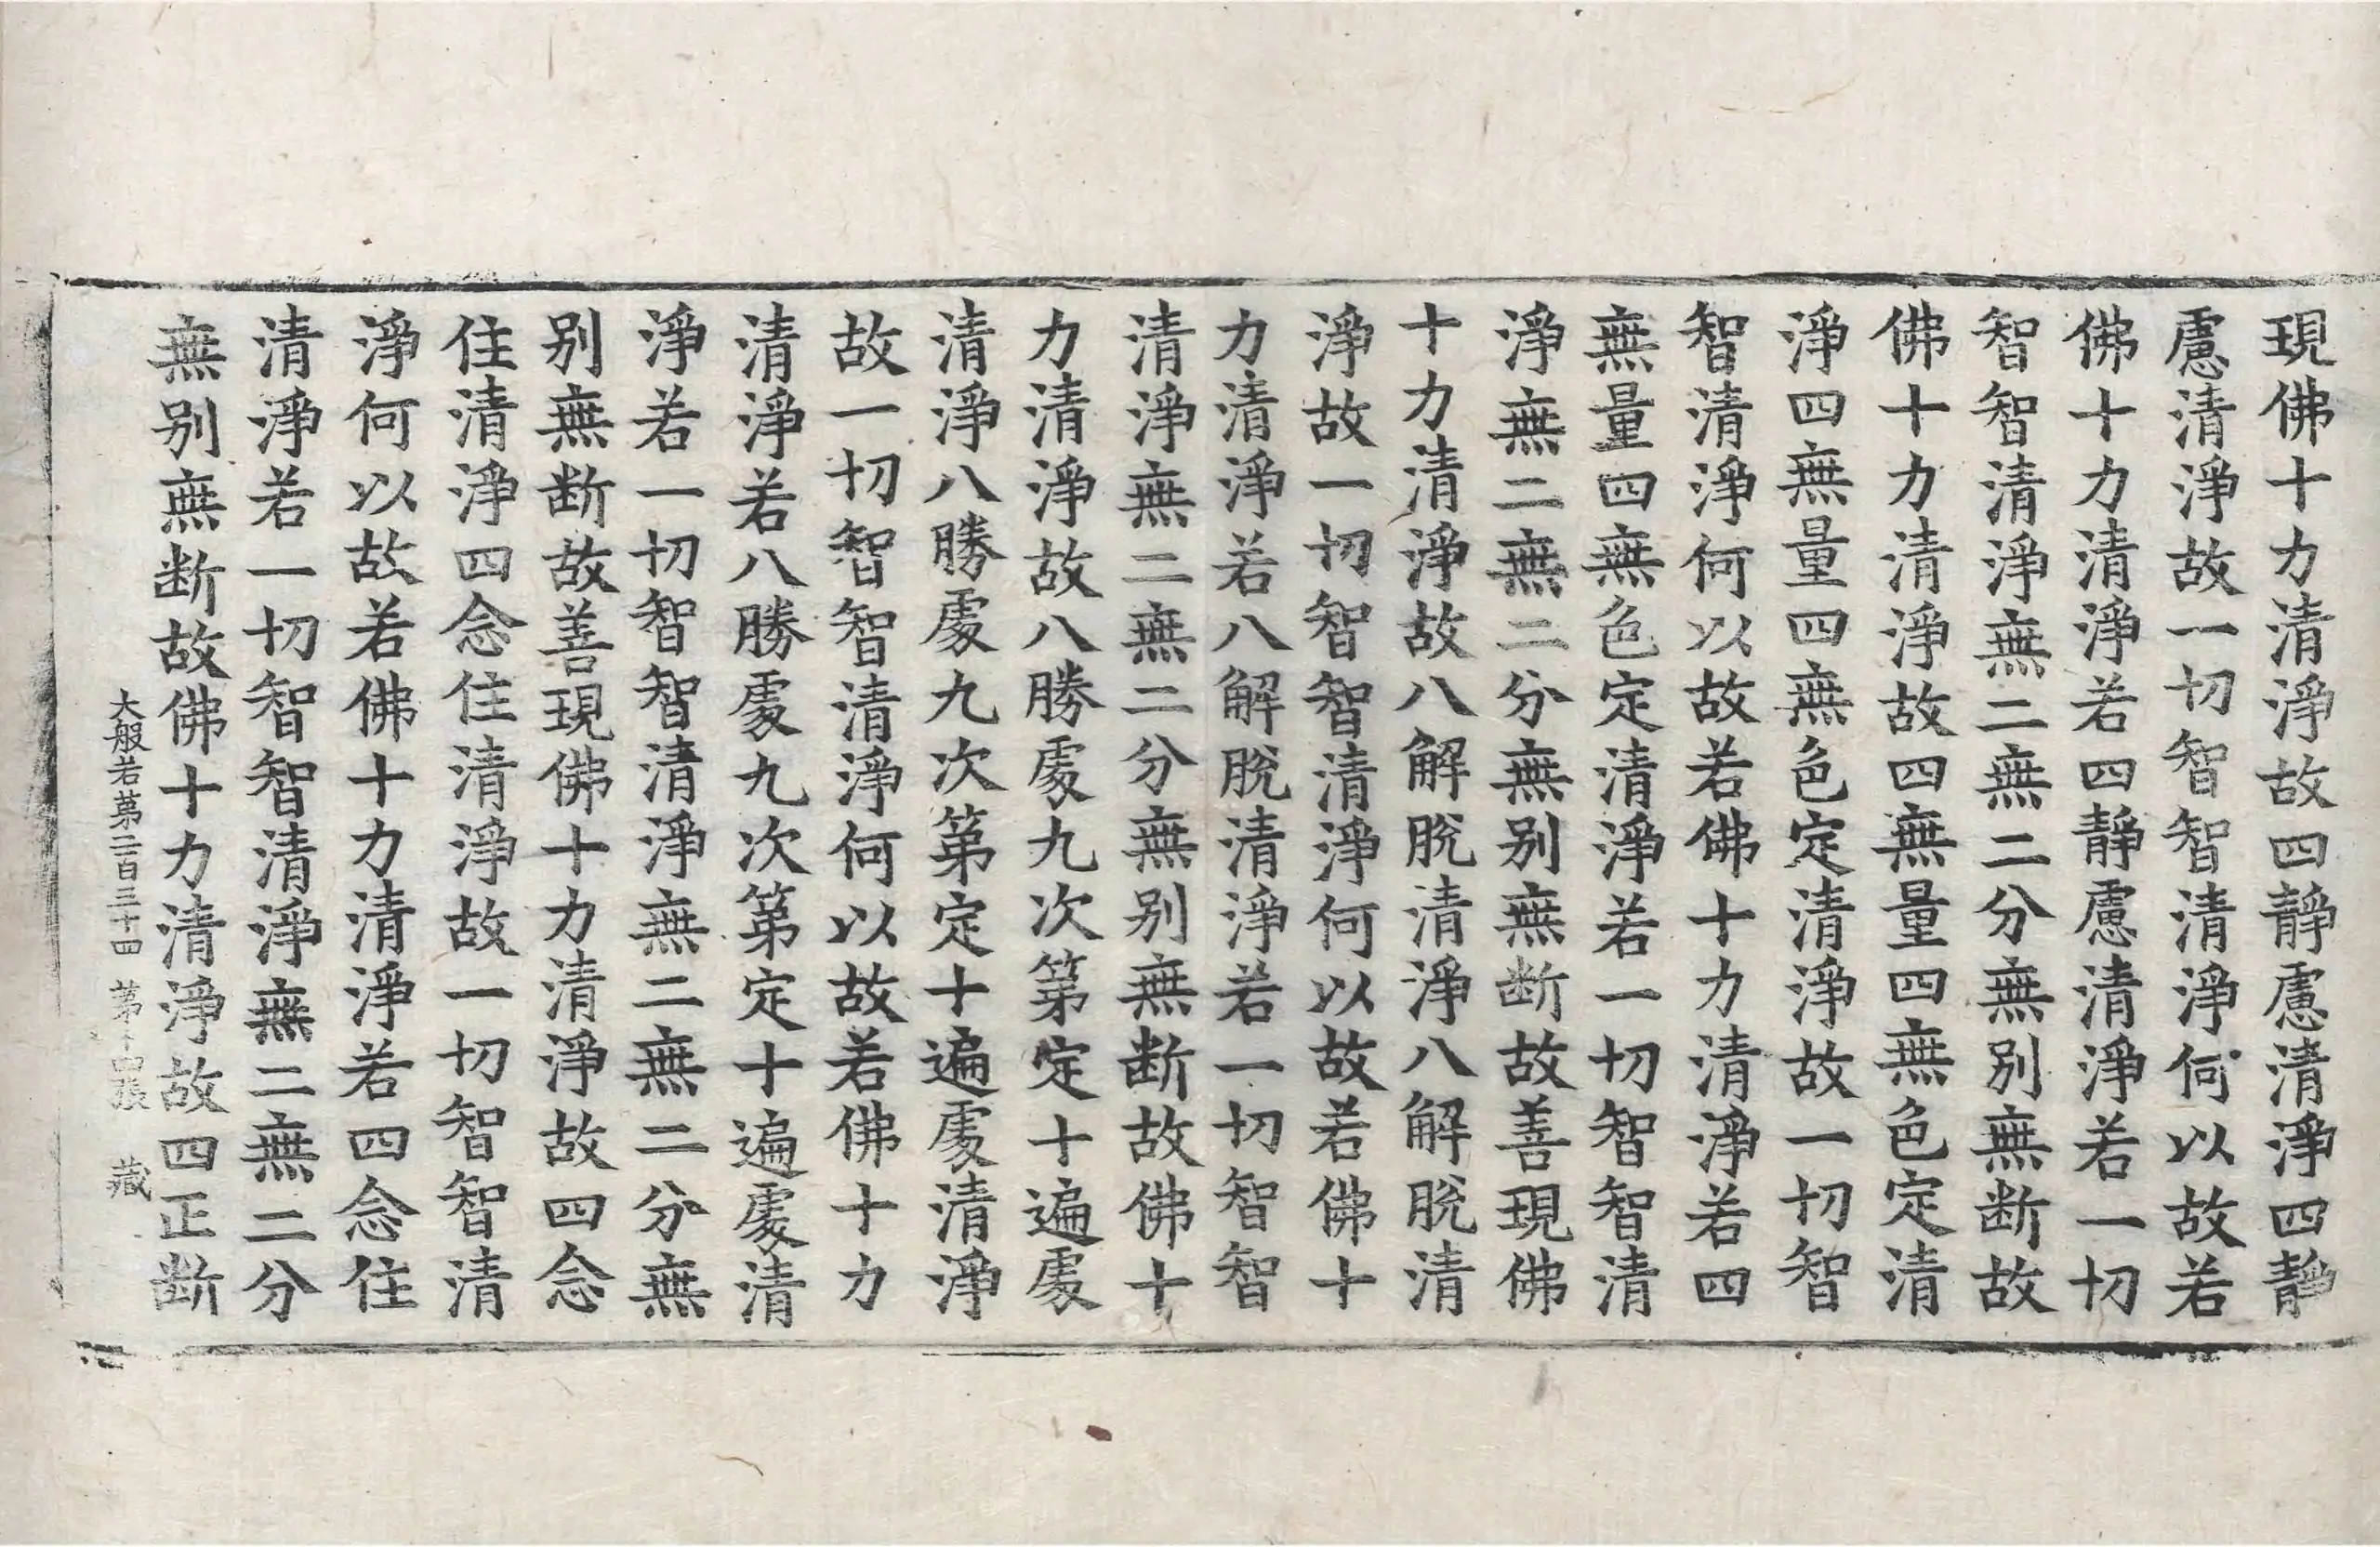 現佛十力清淨故四靜慮清淨四靜
慮清淨故一切智智清淨何以故若
佛十力清淨若四靜慮清淨若一切
智智清淨無二無二分無別無断故
佛十力清淨故四無量四無色定清
淨四無量四無色定清淨故一切智
智清淨何以故若佛十力清淨若四
無量四無色定清淨若一切智智清
淨無二無二分無别無断故善現佛
十力清淨故八解脫清淨八解脫清
淨故一切智智清淨何以故若佛十
力清淨若八解脫清淨若一切智智
清淨無二無二分無别無断故佛十
力清淨故八勝處九次第定十遍處
清淨八勝處九次第定十遍處清淨
故一切智智清淨何以故若佛十力
清淨若八勝處九次第定十遍處清
淨若一切智智清淨無二無二分無
别無断故善現佛十力清淨故四念
住清淨四念住清淨故一切智智清
淨何以故若佛十力清淨若四念住
清淨若一切智智清淨無二無二分
無别無断故佛十力清淨故四正断
大般若第二百三十四 第十四張 藏